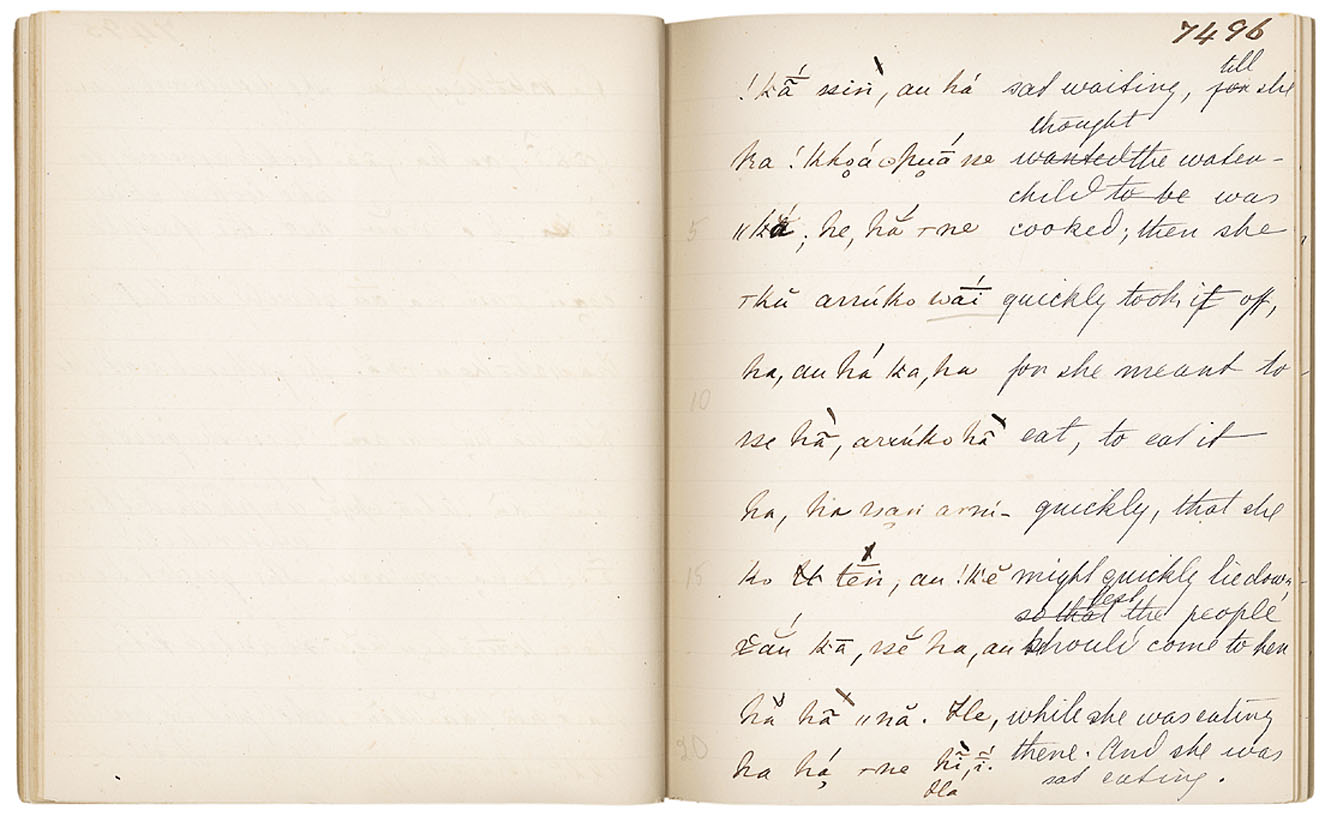 7496
!kā́ ssiṅ, au há sat waiting, for she
till
thought
ka !kho̥á opu̥ā́ sse wanted the water-
child to be was
5 ; he, hắ -ne cooked; then she
-kŭ arrúko wā́i quickly took it off,
ha, au há ka, ha for she meant to
10
sse hā̀, arrúko hā̀ eat, to eat it
ha, ha ssaṅ arrú- quickly, that she
15 ko tēṅ, au !kĕ might quickly lie down
so that the people
lest
kā, ssĕ́ ha, au should come to her
hă hā̀ ıı nă. He, while she was eating
there. And she was
20
ha há -ne
sat eating.
Ha